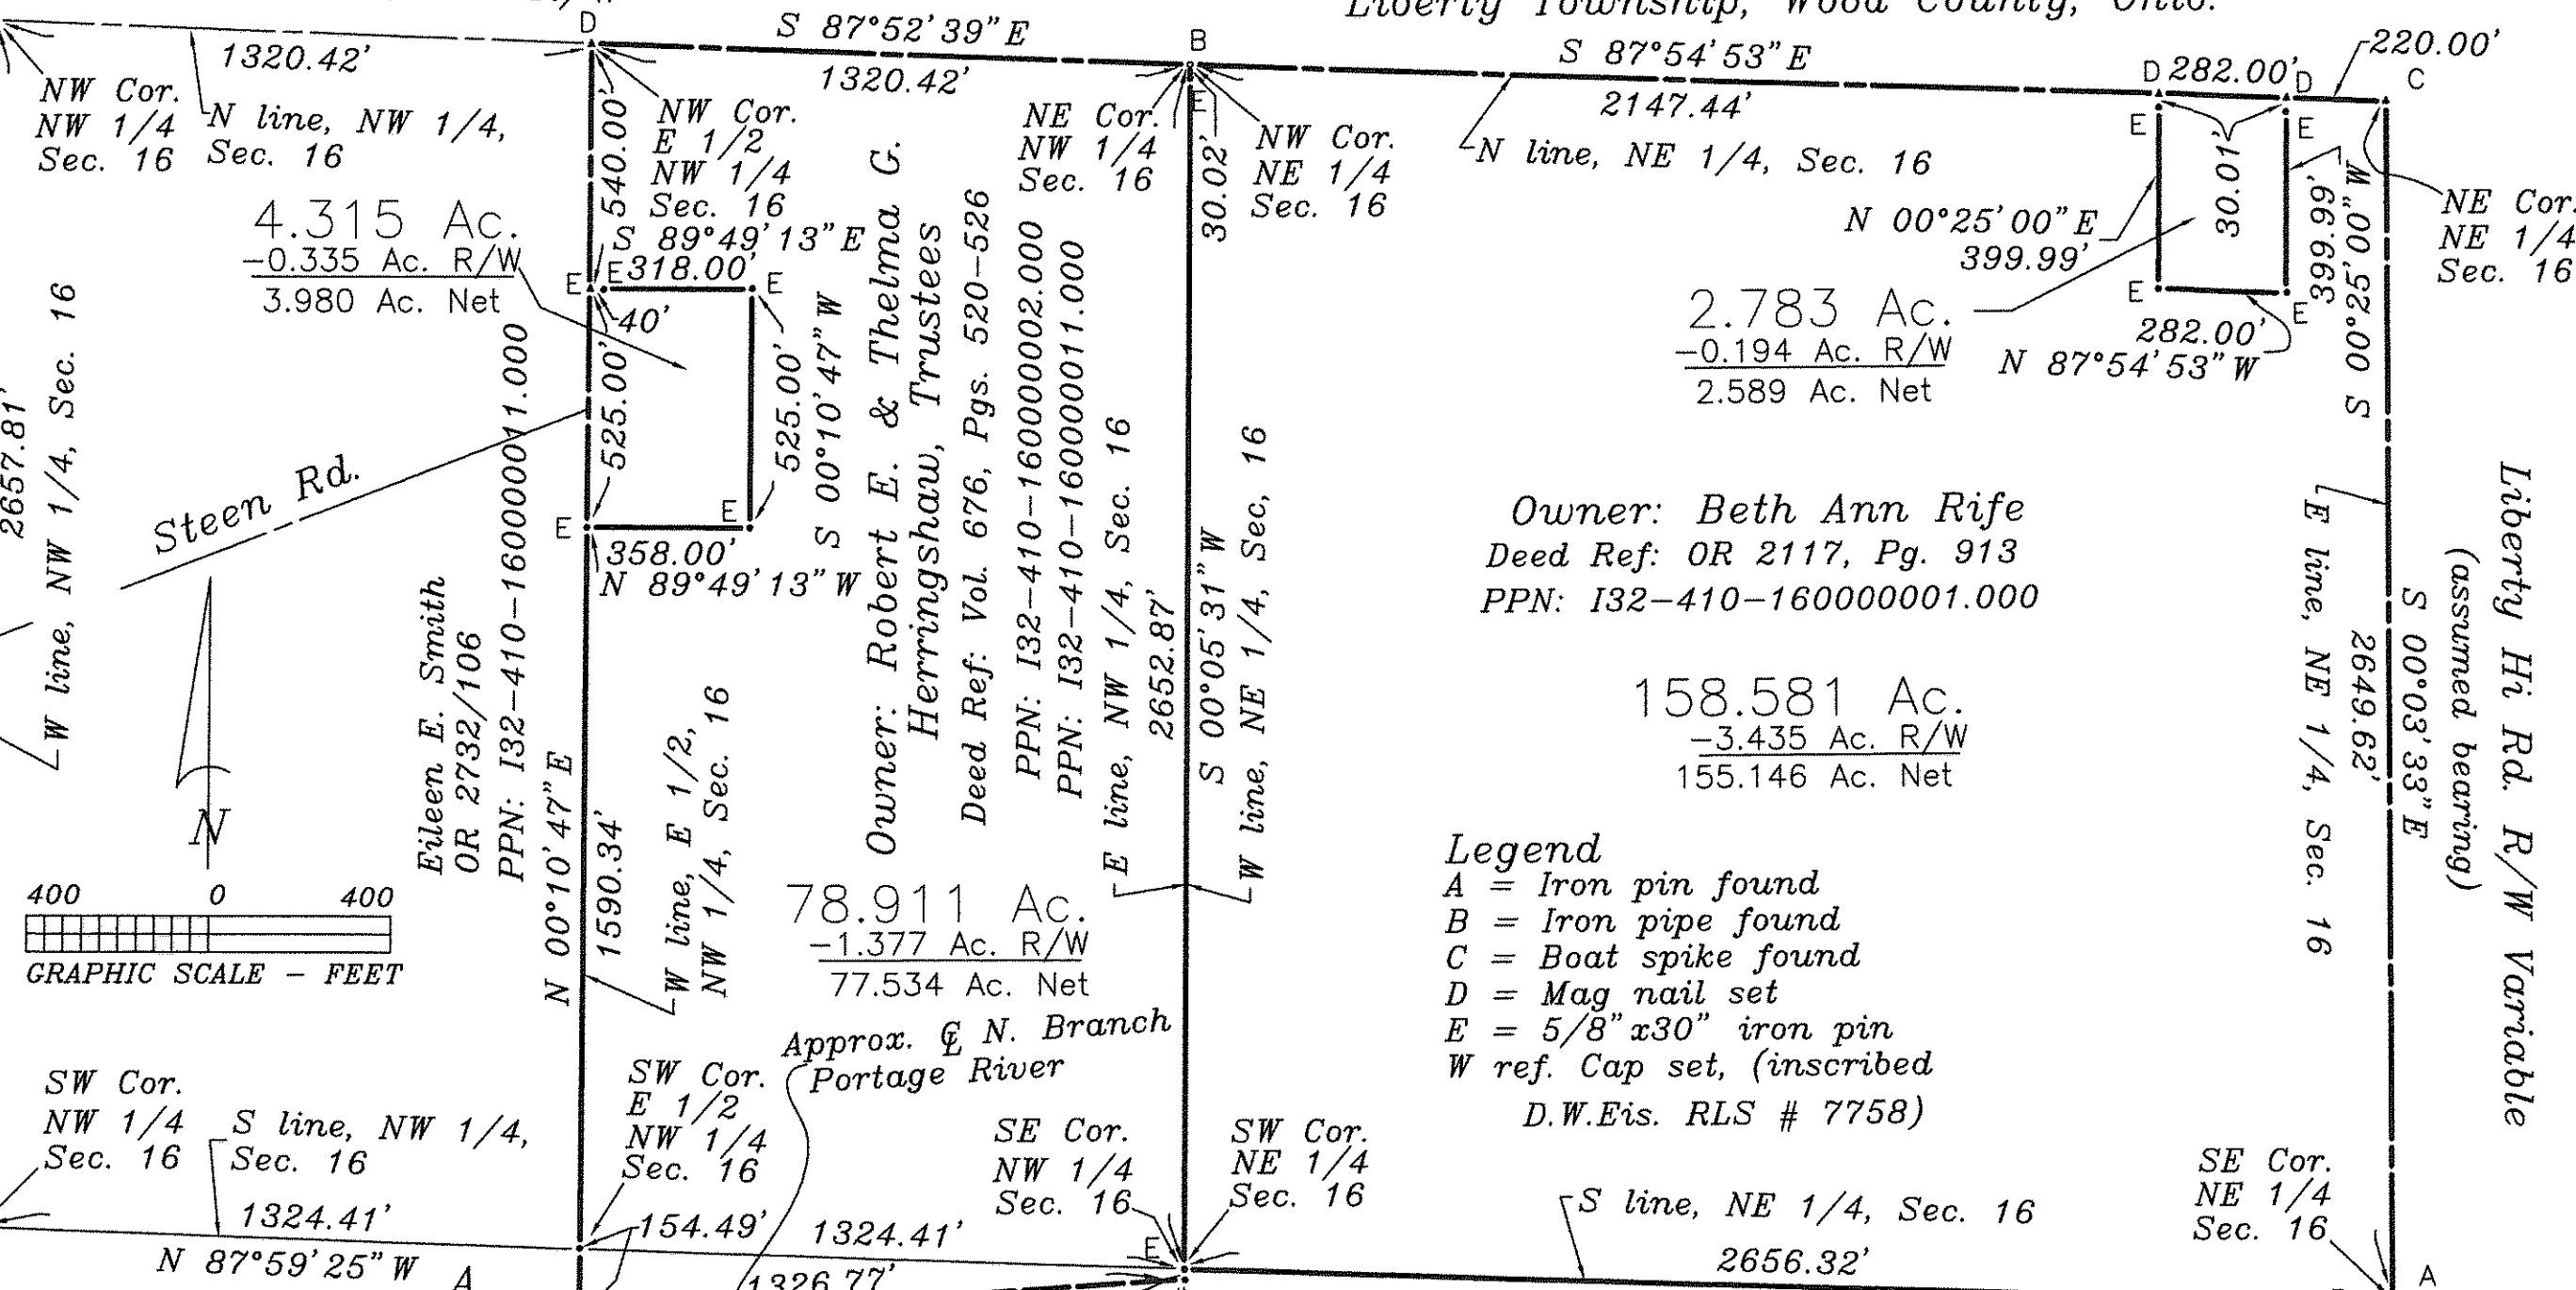 Liberty Township, Wood County, Ohio.
D
S 87°52'39" E
B
S 87°54'53" E
220.00'
1320.42'
1320.42'
D 282.00' D
C
2147.44'
NW Cor.
NW 1/4
Sec. 16
N line, NW 1/4,
Sec. 16
540.00'
NW Cor.
E 1/2
NW 1/4
Sec. 16
NE Cor.
NW 1/4
Sec. 16
E
30.02'
NW Cor.
NE 1/4
Sec. 16
N line, NE 1/4, Sec. 16
E
E
30.01'
N 00°25'00" E
399.99'
399.99'
S 00°25'00" W
NE Cor.
NE 1/4
Sec. 16
4.315 Ac.
-0.335 Ac. R/W
3.980 Ac. Net
S 89°49'13" E
E
E
318.00'
E
40'
525.00'
525.00'
S 00°10'47" W
E
E
358.00'
N 89°49'13" W
2.783 Ac.
-0.194 Ac. R/W
2.589 Ac. Net
E
E
282.00'
N 87°54'53" W
2657.81'
W line, NW 1/4, Sec. 16
Steen Rd.
Eileen E. Smith
OR 2732/106
PPN: I32-410-160000011.000
N 00°10'47" E
1590.34'
W line, E 1/2,
NW 1/4, Sec. 16
Owner: Robert E. & Thelma G.
Herringshaw, Trustees
Deed Ref: Vol. 676, Pgs. 520-526
PPN: I32-410-160000002.000
PPN: I32-410-160000011.000
E line, NW 1/4, Sec. 16
2652.87'
S 00°05'31" W
W line, NE 1/4, Sec, 16
Owner: Beth Ann Rife
Deed Ref: OR 2117, Pg. 913
PPN: I32-410-160000001.000
158.581 Ac.
-3.435 Ac. R/W
155.146 Ac. Net
E line, NE 1/4, Sec. 16
2649.62'
S 00°03'33" E
(assumed bearing)
Liberty Hi Rd. R/W Variable
N
400 0 400
GRAPHIC SCALE - FEET
78.911 Ac.
-1.377 Ac. R/W
77.534 Ac. Net
Legend
A = Iron pin found
B = Iron pipe found
C = Boat spike found
D = Mag nail set
E = 5/8"x30" iron pin
W ref. Cap set, (inscribed
D.W.Eis. RLS # 7758)
Approx. ℄ N. Branch
Portage River
SW Cor.
NW 1/4
Sec. 16
S line, NW 1/4,
Sec. 16
1324.41'
N 87°59'25" W
A
SW Cor.
E 1/2
NW 1/4
Sec. 16
154.49'
1324.41'
1326.77'
SE Cor.
NW 1/4
Sec. 16
E
SW Cor.
NE 1/4
Sec. 16
S line, NE 1/4, Sec. 16
2656.32'
SE Cor.
NE 1/4
Sec. 16
A